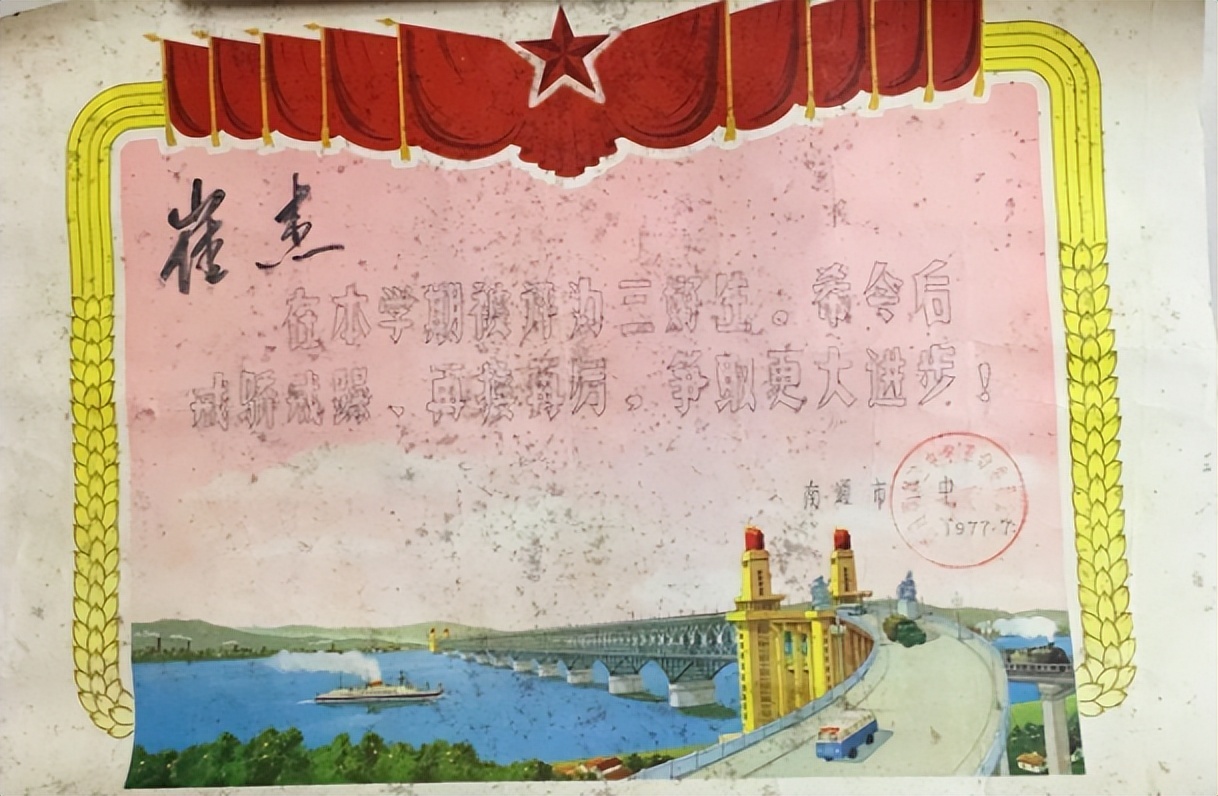 崔杰
在本学期被评为三好生。希今后
戒骄戒躁、再接再厉,争取更大进步!
南通市 中
1977.7.